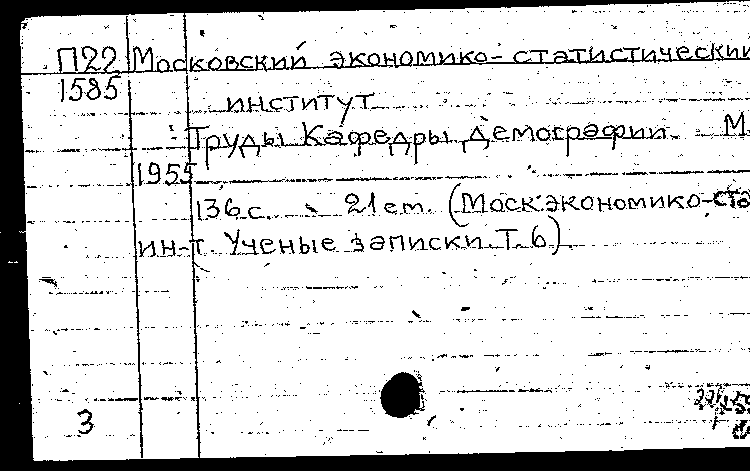 П22 Московский экономико-статистический
1585
институт
Труды Кафедры демографии. М.
1955
136 с. 21 cm. (Моск. экономико-ста
ин-т. Ученые записки. Т. 6).
3